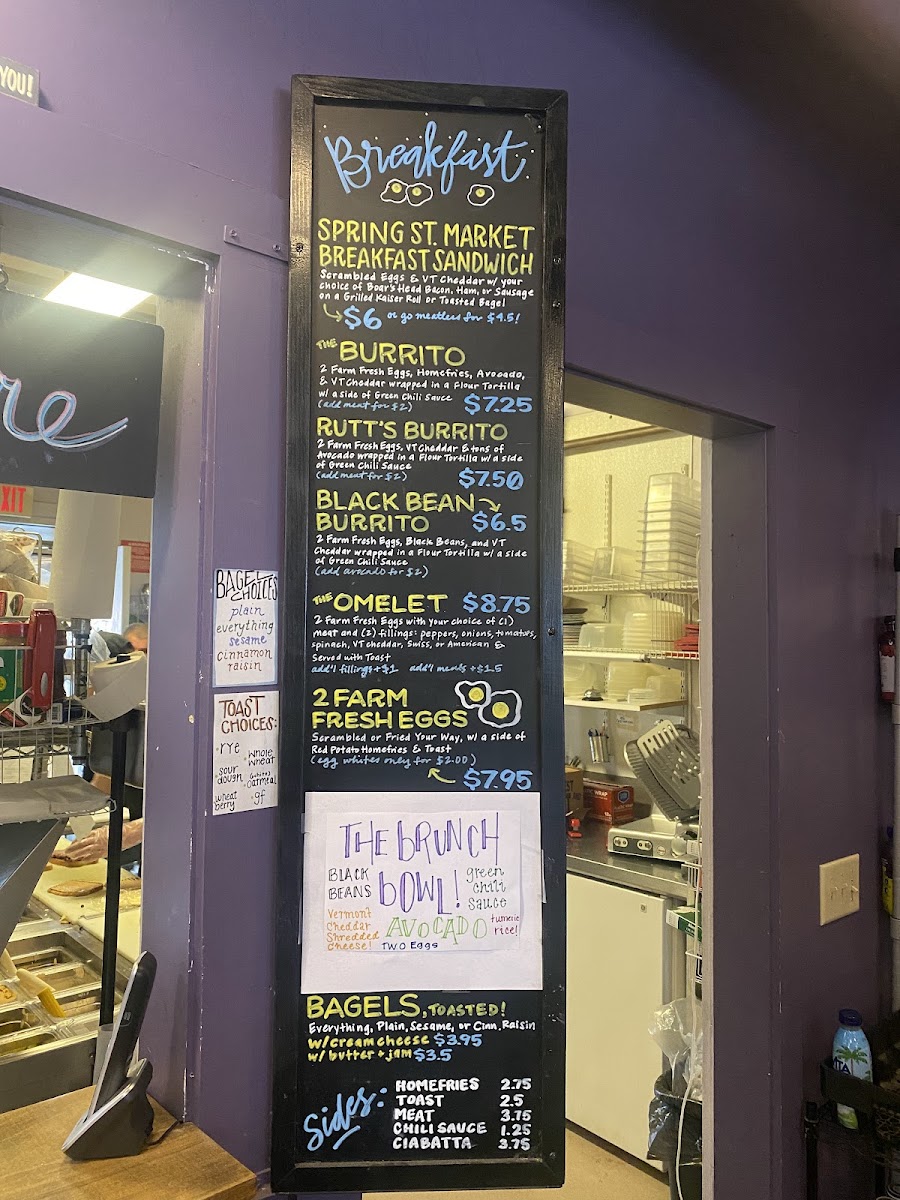 YOU!
re
EXIT
Breakfast
SPRING ST. MARKET
BREAKFAST SANDWICH
Scrambled Eggs & VT Cheddar w/ your
choice of Boar's Head Bacon, Ham, or Sausage
on a Grilled Kaiser Roll or Toasted Bagel
$6 or go meatless for $4.5!
THE BURRITO
2 Farm Fresh Eggs, Homefries, Avocado,
& VT Cheddar wrapped in a Flour Tortilla
w/ a side of Green Chili Sauce
(add meat for $2) $7.25
RUTT'S BURRITO
2 Farm Fresh Eggs, VT Cheddar & tons of
Avocado wrapped in a Flour Tortilla w/ a side
of Green Chili Sauce
(add meat for $2) $7.50
BLACK BEAN
BURRITO $6.5
2 Farm Fresh Eggs, Black Beans, and VT
Cheddar wrapped in a Flour Tortilla w/ a side
of Green Chili Sauce
(add avocado for $2)
THE OMELET $8.75
2 Farm Fresh Eggs with your choice of (1)
meat and (2) fillings: peppers, onions, tomatoes,
spinach, VT cheddar, Swiss, or American &
Served with Toast
add'l fillings +$1 add'l meats +$1.5
2 FARM
FRESH EGGS
Scrambled or Fried Your Way, w/ a side of
Red Potato Homefries & Toast
(egg whites only for $2.00)
$7.95
THE BRUNCH
BOWL!
BLACK
BEANS
green
chili
sauce
Vermont
Cheddar
Shredded
Cheese!
AVOCADO
tumeric
rice!
TWO Eggs
BAGELS, TOASTED!
Everything, Plain, Sesame, or Cinn. Raisin
w/ cream cheese $3.95
w/ butter + jam $3.5
Sides:
HOMEFRIES 2.75
TOAST 2.5
MEAT 3.75
CHILI SAUCE 1.25
CIABATTA 3.75
BAGEL
CHOICES
plain
everything
sesame
cinnamon
raisin
TOAST
CHOICES:
rye
whole
wheat
sour
dough
oatmeal
wheat
berry
gf